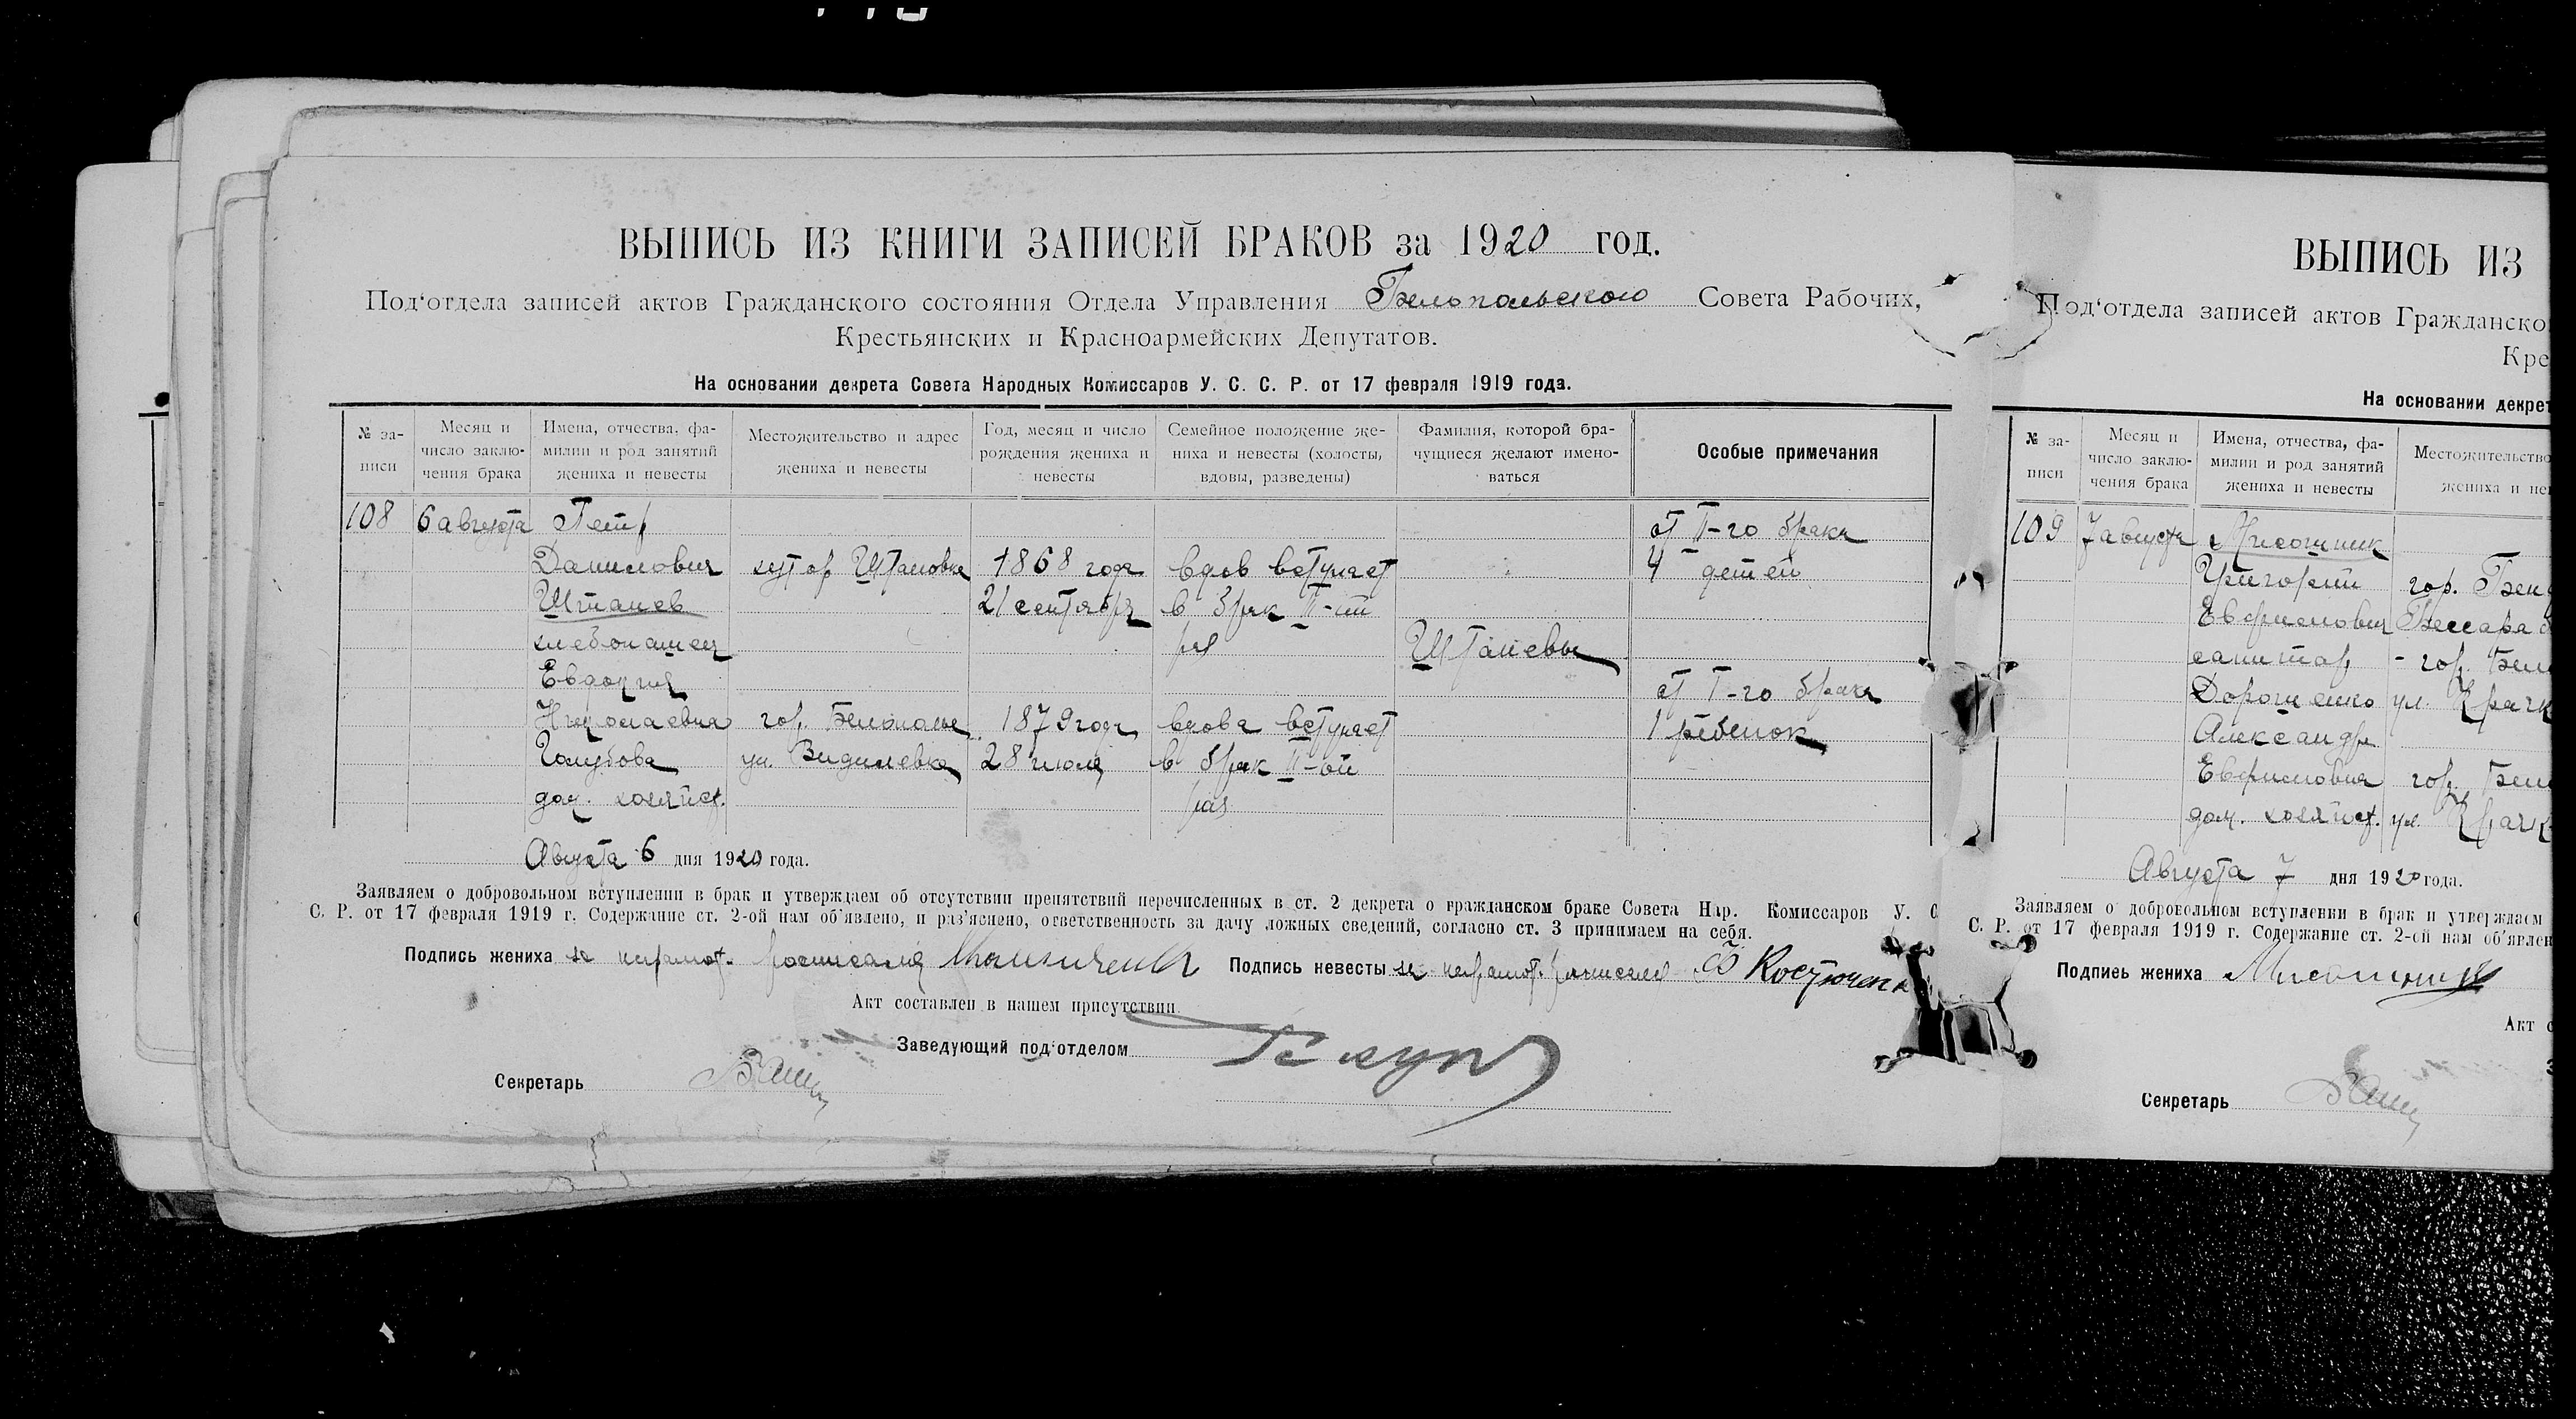 ВЫПИСЬ ИЗ КНИГИ ЗАПИСЕЙ БРАКОВ за 1920 год.
Под‘отдела записей актов Гражданского состояния Отдела Управления Белопольского Совета Рабочих,
Крестьянских и Красноармейских Депутатов.
На основании декрета Совета Народных Комиссаров У. С. С. Р. от 17 февраля 1919 года.
№ за-
писи
Месяц и
число заклю-
чения брака
Имена, отчества, фа-
милии и род занятий
жениха и невесты
Местожительство и адрес
жениха и невесты
Год, месяц и число
рождения жениха и
невесты
Семейное положение же-
ниха и невесты (холосты,
вдовы, разведены)
Фамилия, которой бра-
чущиеся желают имено-
ваться
Особые примечания
108 6 августа Петр от II-го брака
Данилович хутор Штановка 1868 года вдов вступает 4 детей
Штанев 21 сентября в брак II-ий
хлебопашец раз Штаневы
Евдокия от I-го брака
Николаевна гор. Белополье 1879 года вдова вступает 1 ребенок
Голубова ул. Видилевка 28 июля в брак II-ой
дом. хозяйст. раз
Августа 6 дня 1920 года.
Заявляем о добровольном вступлении в брак и утверждаем об отсутствии препятствий перечисленных в ст. 2 декрета о гражданском браке Совета Нар. Комиссаров У. С.
С. Р. от 17 февраля 1919 г. Содержание ст. 2-ой нам об‘явлено, и раз‘яснено, ответственность за дачу ложных сведений, согласно ст. 3 принимаем на себя.
Подпись жениха за неграмот. росписался Подпись невесты за неграмот. росписался
Акт составлен в нашем присутствии.
Заведующий под‘отделом
Секретарь
ВЫПИСЬ ИЗ
Под‘отдела записей актов Гражданско
Кре
На основании декрет
№ за-
писи
Месяц и
число заклю-
чения брака
Имена, отчества, фа-
милии и род занятий
жениха и невесты
Местожительство
жениха и не
109 7 августа Мисошник
Григорий гор.
Евфимович Бессараб
санитар - гор. Бел
Дорошенко ул.
Александра
Евфимовна гор. Бел
дом. хозяйст. ул.
Августа 7 дня 1920 года.
Заявляем о добровольном вступлении в брак и утверждаем
С. Р. от 17 февраля 1919 г. Содержание ст. 2-ой нам об‘явлен
Подпись жениха Мисошник
Акт с
Секретарь